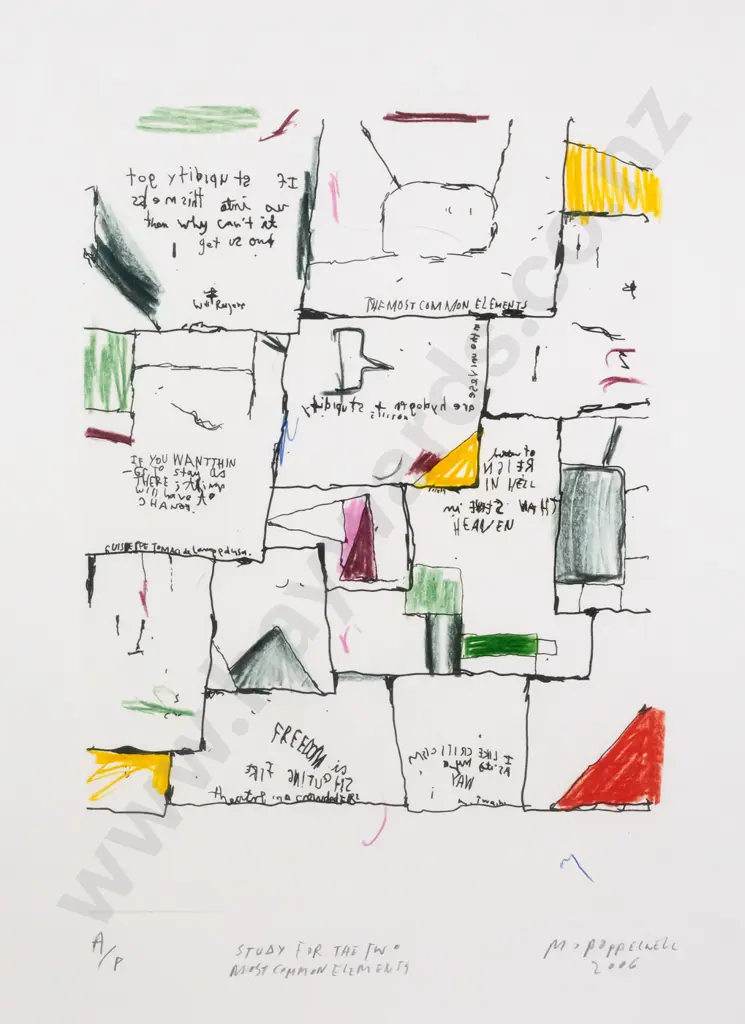 If stupidity got
us into this mess
then why can't it
get us out
Will Rogers
THE MOST COMMON ELEMENTS
in the univese
are hydogen + stupidity
to
REIGN
IN HELL
THAN SERVE in
HEAVEN
IF YOU WANT THIN
-GS TO stay as
THERE ; things
will have to
CHANGE.
GUISEPPE TOMASI di Lampedusa.
FREEDOM is
SHOUTING FIRE
theatre in a crowded
I LIKE CRITICISM
my
WAY
A/P
STUDY FOR THE TWO
MOST COMMON ELEMENTS
M Poppelwell
2006
www.haywards.co.nz